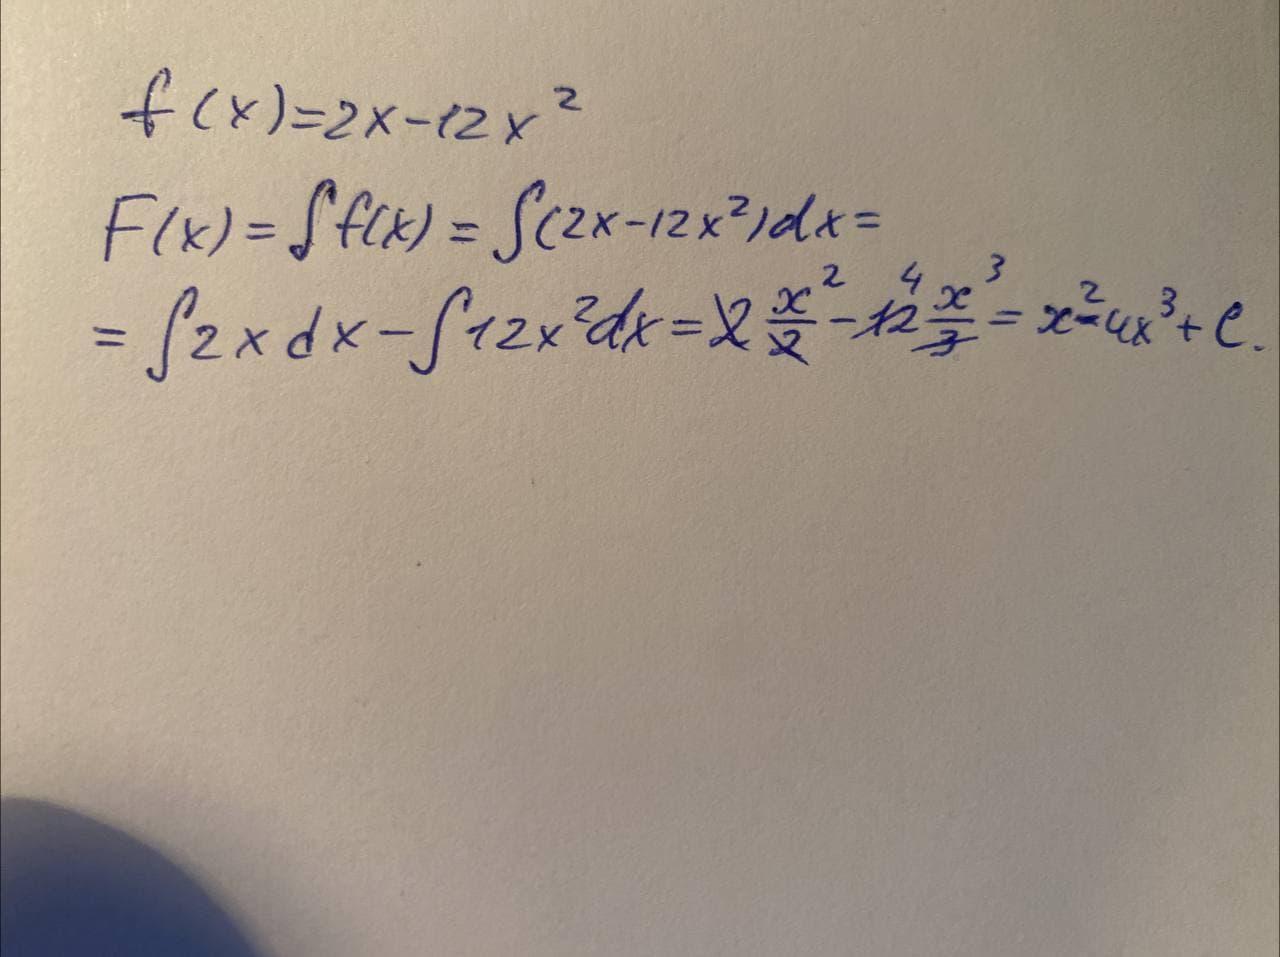 f(x)=2x-12x²
F(x)=∫f(x)=∫(2x-12x²)dx=
=∫2xdx-∫12x²dx=2 x²/2-12 4 x³/3=x²-4x³+C.